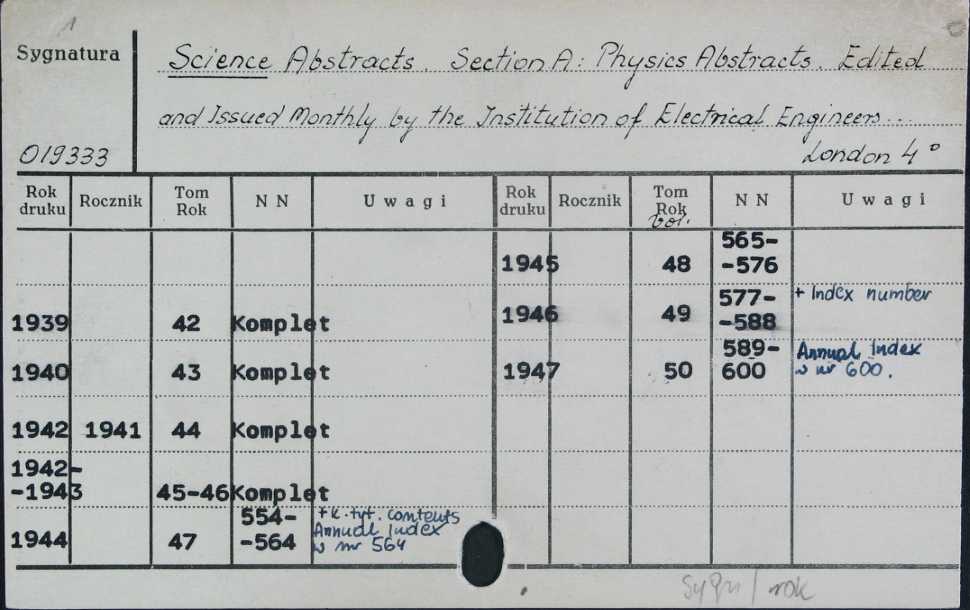 1
Sygnatura
Science Abstracts. Section A: Physics Abstracts. Edited
and Issued Monthly by the Institution of Electrical Engineers...
019333
London 4°
Rok druku Rocznik Tom Rok NN Uwagi
1939 42 Komplet
1940 43 Komplet
1942 1941 44 Komplet
1942-
-1943 45-46 Komplet
1944 47 554-
-564 + k. tyt. contents
Annual Index
w nr 564
Rok druku Rocznik Tom Rok vol. NN Uwagi
1945 48 565-
-576
1946 49 577-
-588 + Index number
1947 50 589-
600 Annual Index
w nr 600.
Sygn / rok